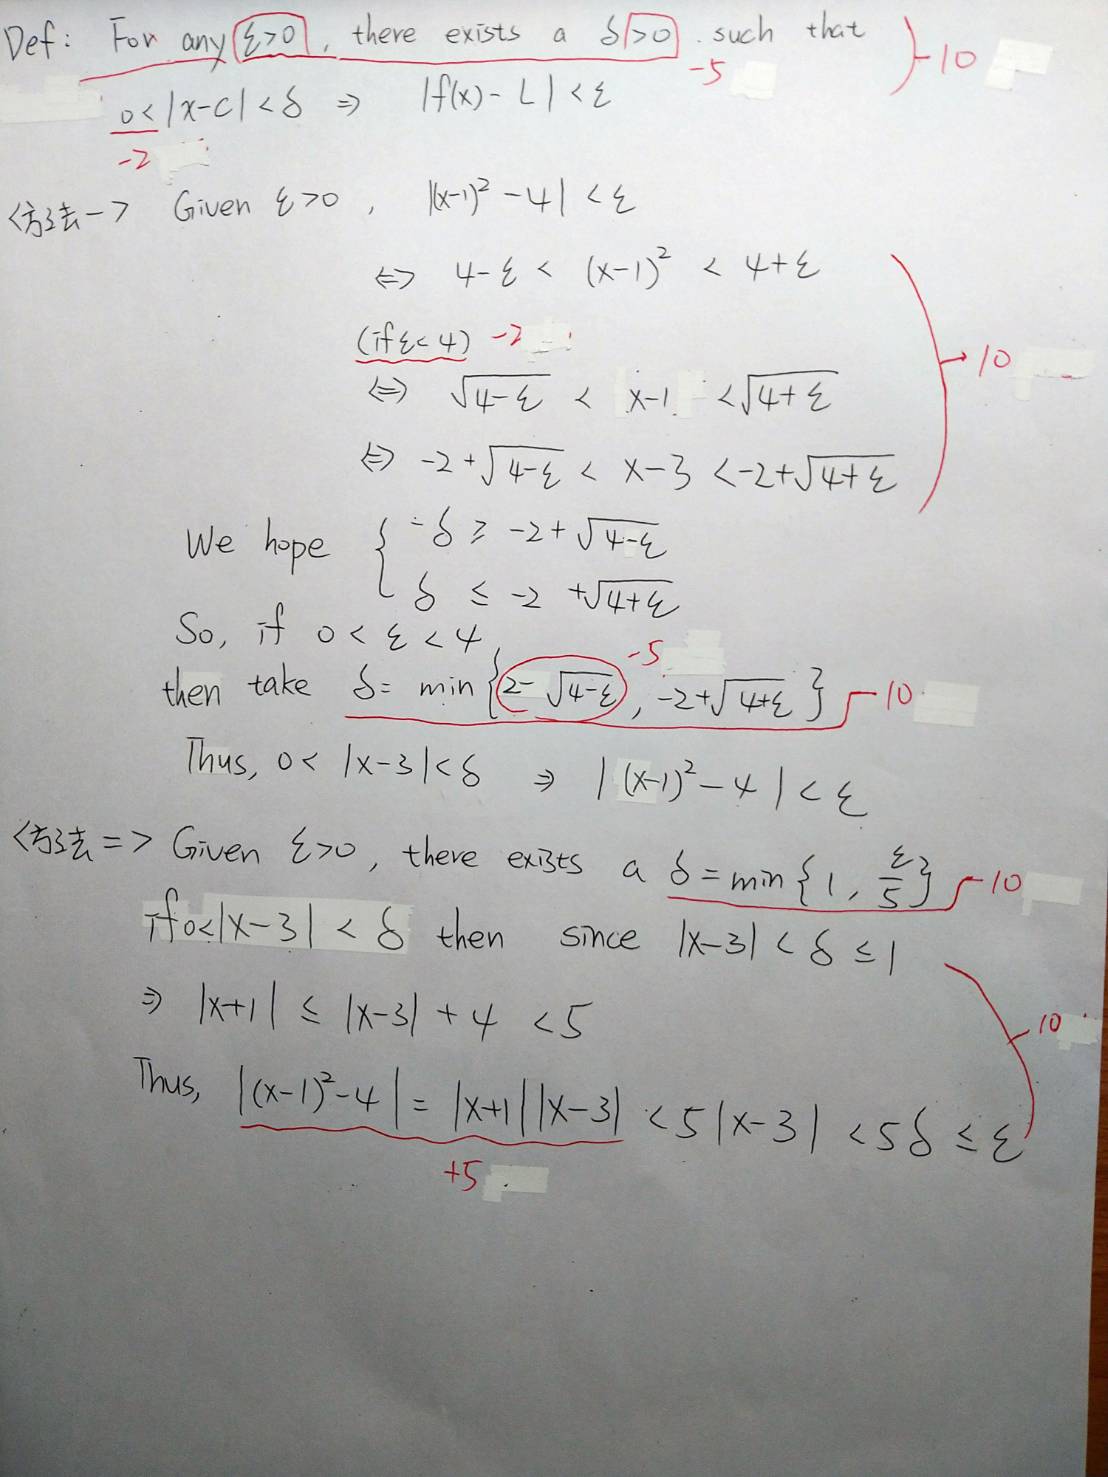 Def: For any ε>0, there exists a δ>0. such that
10
-5
0<|x-c|<δ ⇒ |f(x)-L|<ε
-2
<方法一> Given ε>0, |(x-1)²-4|<ε
⇔ 4-ε < (x-1)² < 4+ε
(if ε<4) -2
10
⇔ √(4-ε) < x-1 < √(4+ε)
⇔ -2+√(4-ε) < x-3 < -2+√(4+ε)
We hope { -δ ≥ -2+√(4-ε)
δ ≤ -2+√(4+ε)
So, if 0<ε<4,
-5
then take δ= min{2-√(4-ε), -2+√(4+ε)} 10
Thus, 0<|x-3|<δ ⇒ |(x-1)²-4|<ε
<方法二> Given ε>0, there exists a δ=min{1, ε/5} 10
if 0<|x-3|<δ then since |x-3|<δ≤1
⇒ |x+1| ≤ |x-3|+4 <5
10
Thus, |(x-1)²-4|=|x+1||x-3|<5|x-3|<5δ≤ε
+5